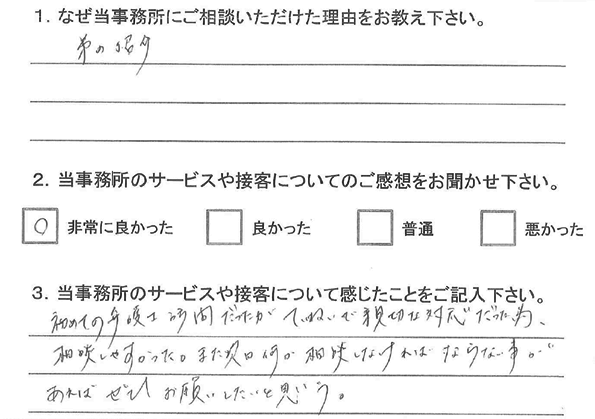 1. なぜ当事務所にご相談いただけた理由をお教え下さい。
弟の紹介
2. 当事務所のサービスや接客についてのご感想をお聞かせ下さい。
○ 非常に良かった 良かった 普通 悪かった
3. 当事務所のサービスや接客について感じたことをご記入下さい。
初めての弁護士訪問だったが ていねいで親切な対応だった為、
相談しやすかった。また次回何か相談しなければならない事が
あれば ぜひ お願いしたいと思う。